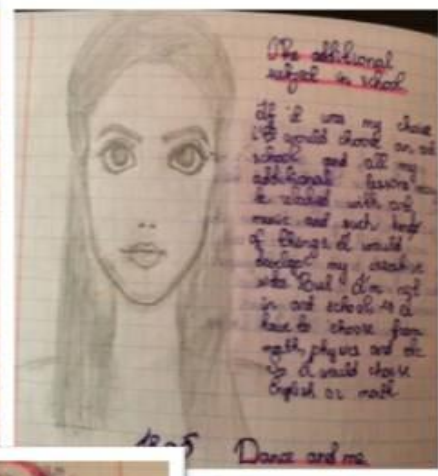 The additional
subject in school
If it was my choice
I would choose an art
school and all my
additional lessons
be related with art
music and such kind
of things. I would
develop my creative
side. But I'm not
in art school & I
have to choose from
math, physics and etc
So I would choose
English or math
Dance and me